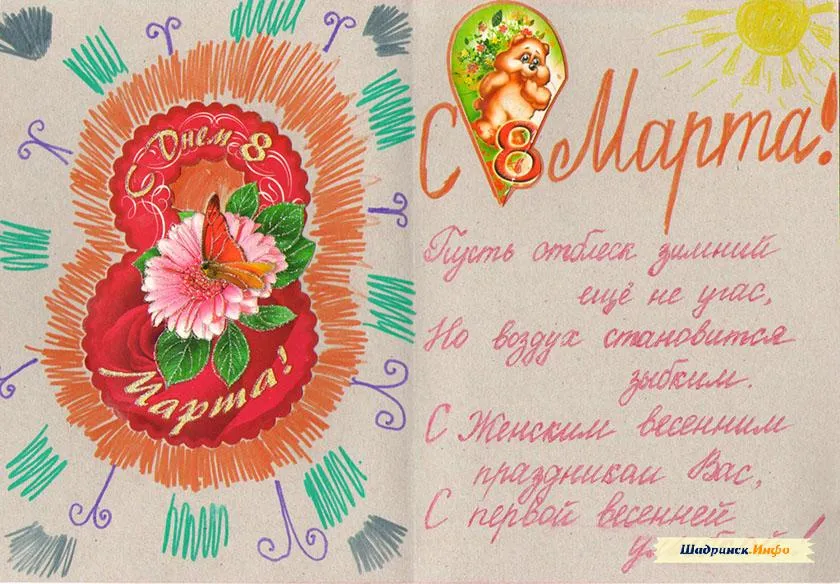 С Днем 8
Марта!
С 8 Марта!
Пусть отблеск зимний
ещё не угас,
Но воздух становится
зыбким.
С Женским весенним
праздником Вас,
С первой весенней
Шадринск.Инфо